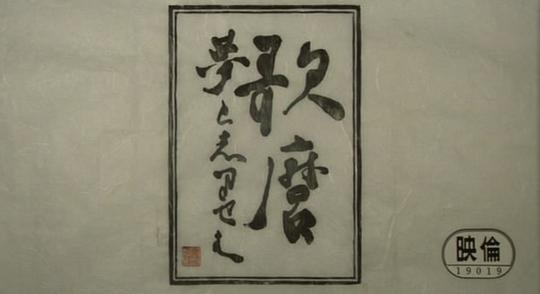 歌麿
夢と志里せは
映倫
19019